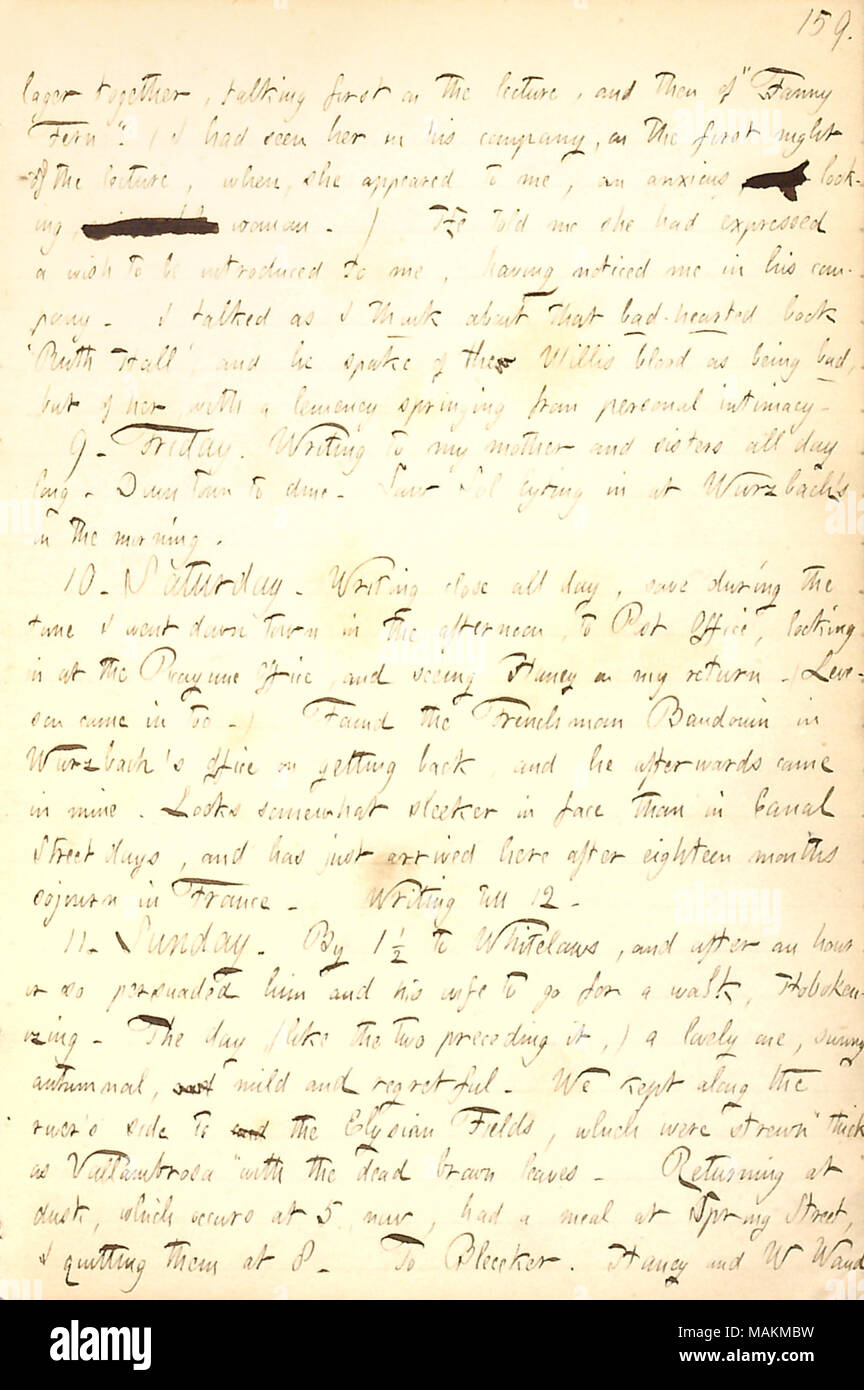 159.
lager together, talking first on the lecture, and then of "Fanny
Fern". (I had seen her in his company, on the first night
of the lecture, when, she appeared to me, an anxious look-
ing, woman.) He told me she had expressed
a wish to be introduced to me, having noticed me in his com-
pany. I talked as I think about that bad-hearted book
'Ruth Hall', and he spoke of the Willis blood as being bad,
but of her with a leniency springing from personal intimacy.
9. Friday. Writing to my mother and sisters all day
long. Down town to dine. Saw Sol eyting in at Wurzbach's
in the morning.
10. Saturday. Writing close all day, save during the
time I went down town in the afternoon, to Post Office, looking
in at the Picayune Office, and seeing Haney on my return. (Leve-
son came in to.) Found the Frenchman Baudouin in
Wurzbach's office on getting back, and he afterwards came
in mine. Looks somewhat sleeker in face than in Canal
Street days, and has just arrived here after eighteen months
sojourn in France. Writing till 12.
11. Sunday. By 1 ½ to Whitelaws, and after an hour
or so persuaded him and his wife to go for a walk, Hoboken-
izing. The day (like the two preceding it,) a lovely one, sunny
autumnal, mild and regretful. We kept along the
river's side to the Elysian Fields, which were strewn "thick
as Vallambrosa" with the dead brown leaves. Returning at
dusk, which occurs at 5 now, had a meal at Spring Street,
I quitting them at 8. To Bleecker. Haney and W Waud
alamy
Image ID: MAKMBW
www.alamy.com